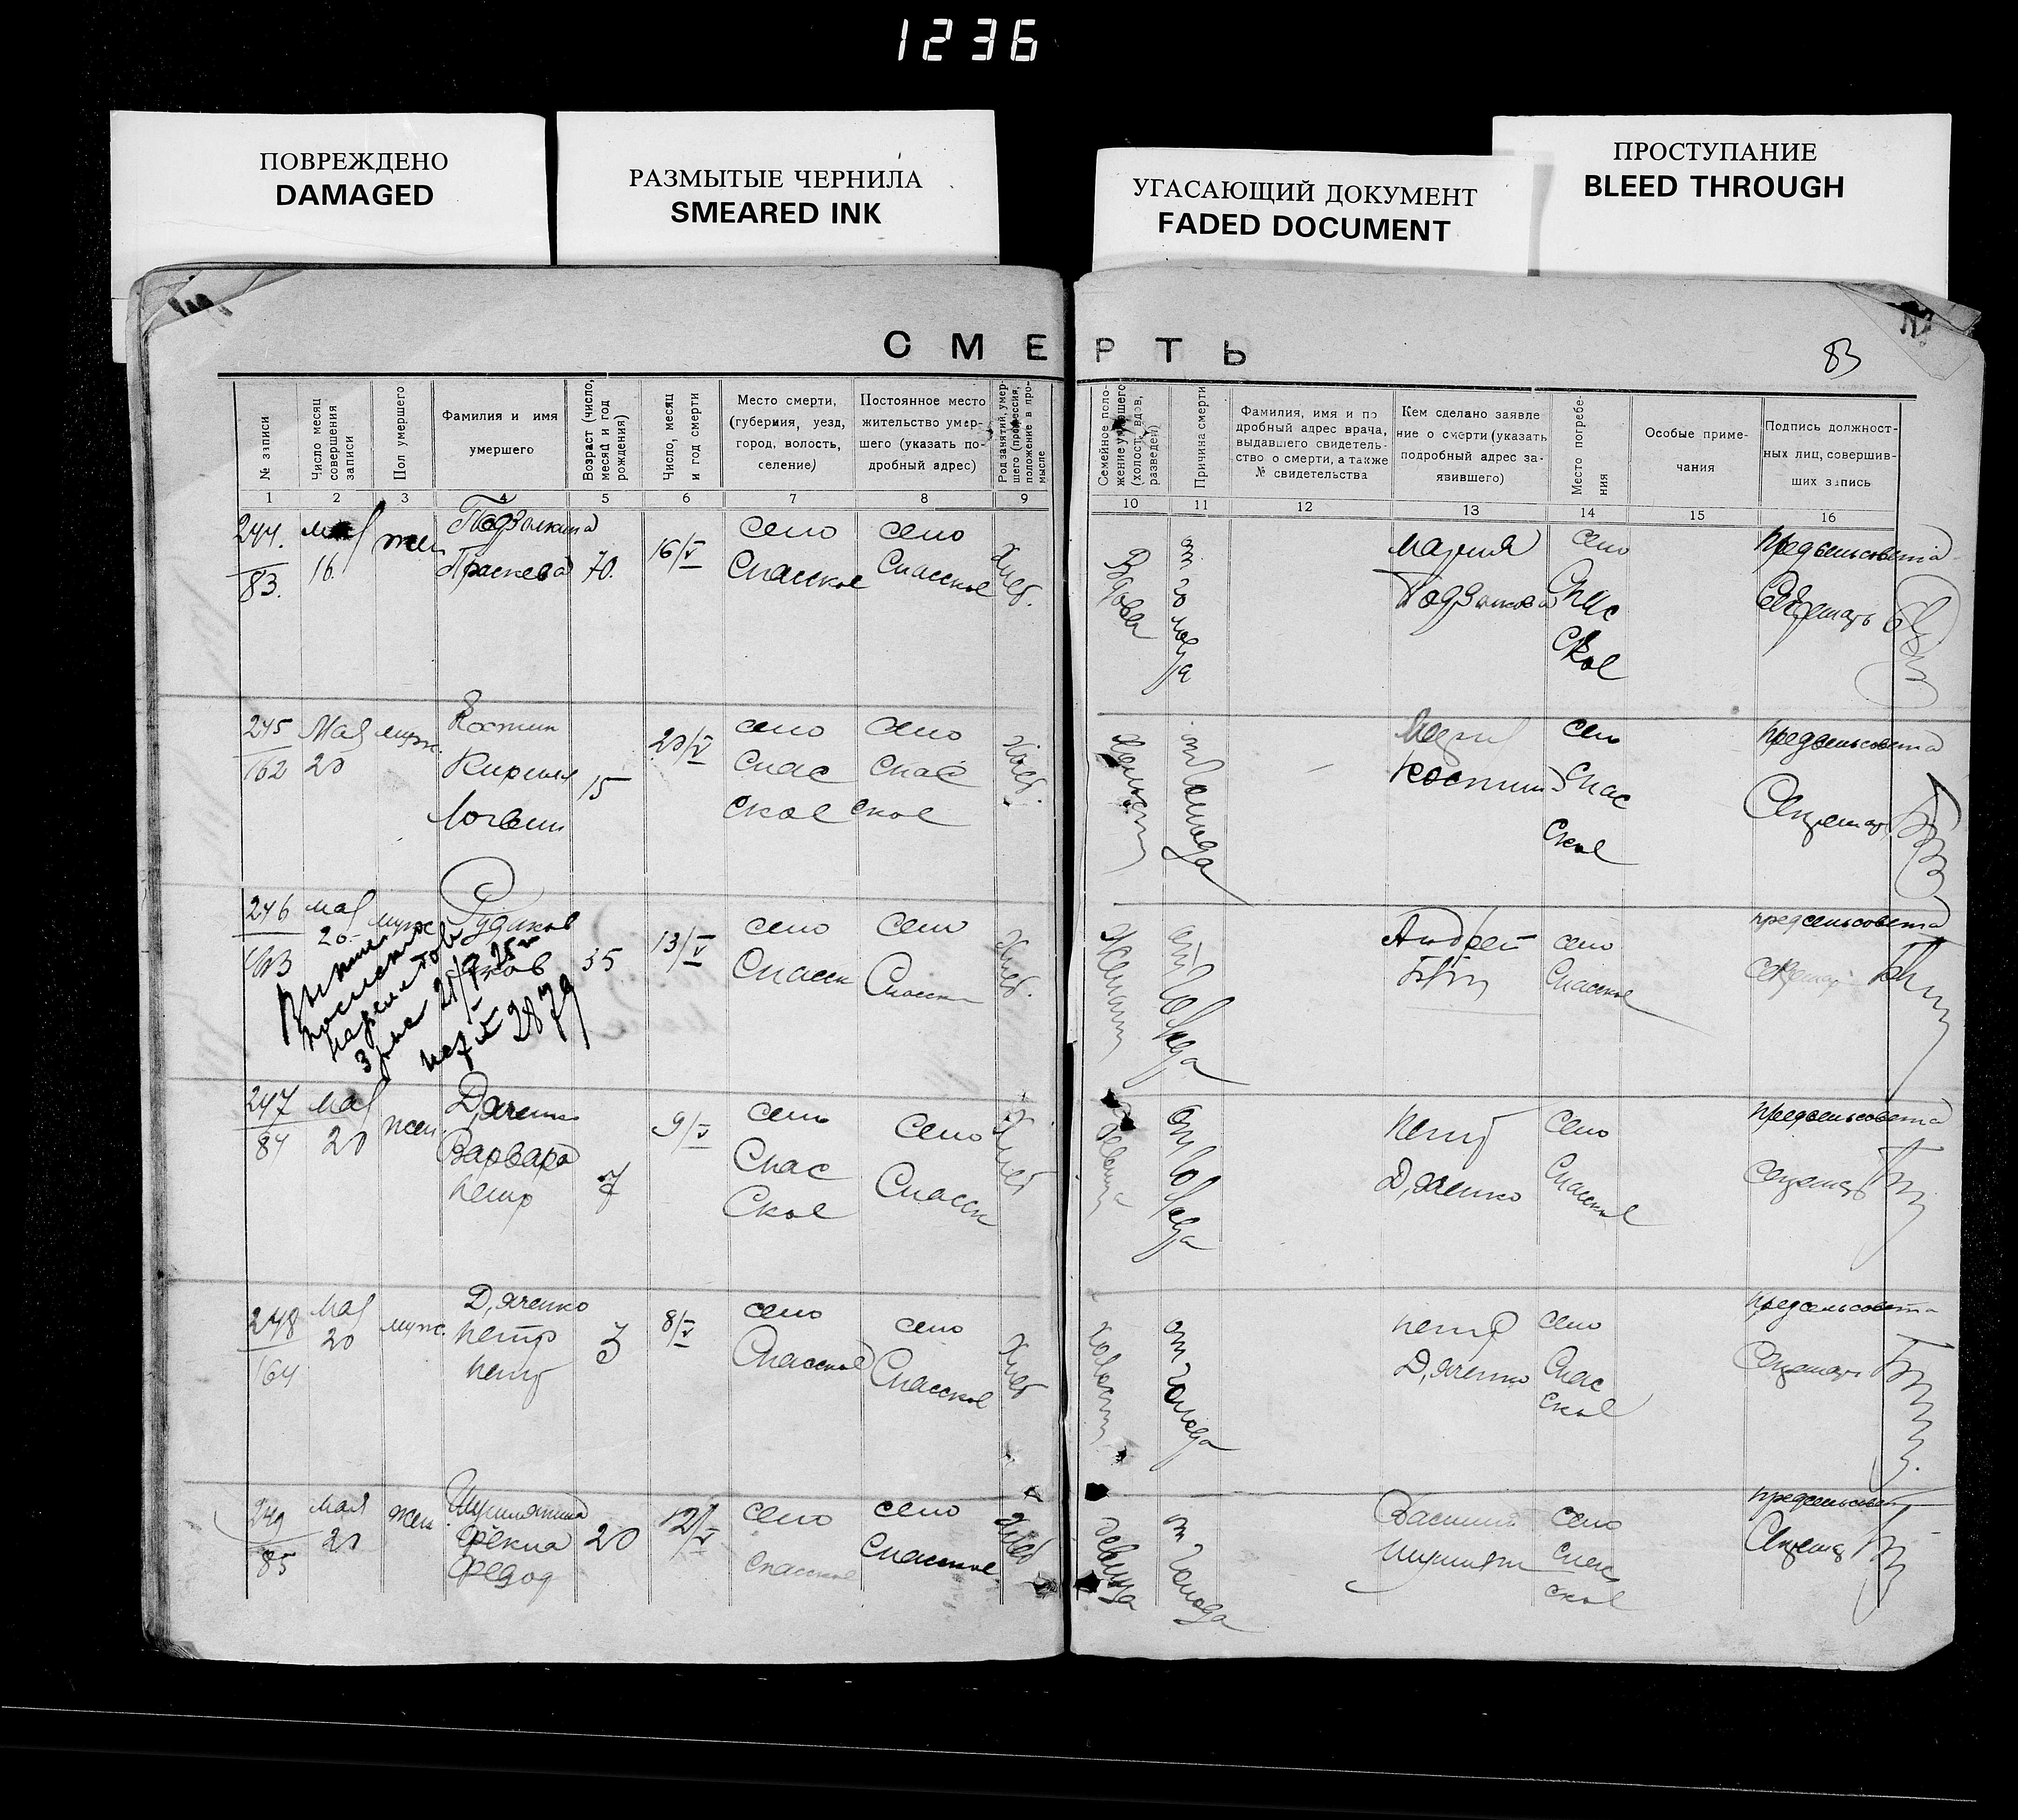 1236
ПОВРЕЖДЕНО
DAMAGED
РАЗМЫТЫЕ ЧЕРНИЛА
SMEARED INK
УГАСАЮЩИЙ ДОКУМЕНТ
FADED DOCUMENT
ПРОСТУПАНИЕ
BLEED THROUGH
СМЕРТЬ
83
№ записи
Число месяц
совершения
записи
Пол умершего
Фамилия и имя
умершего
Возраст (число,
месяц и год
рождения)
Число, месяц
и год смерти
Место смерти,
(губерния, уезд,
город, волость,
селение)
Постоянное место
жительство умер-
шего (указать по-
дробный адрес)
Род занятий, умер-
шего (профессия,
положение в про-
мысле
Семейное поло-
жение умершего
(холост, вдов,
разведен)
Причина смерти
Фамилия, имя и по
дробный адрес врача,
выдавшего свидетель-
ство о смерти, а также
№ свидетельства
Кем сделано заявле
ние о смерти (указать
подробный адрес за-
явившего)
Место погребе-
ния
Особые приме-
чания
Подпись должност-
ных лиц, совершив-
ших запись
1 2 3 4 5 6 7 8 9 10 11 12 13 14 15 16
244.
83.
мая
16.
жен
Прасковья
70.
16/V
село
Спасское
село
Спасское
Хлеб.
Вдова
от голода
Мария
село
Спас
ское
предсельсовета
Секретарь
245
162
Мая
20
муж.
Костин
Кирилл
Логвин
15
20/V
село
Спас
ское
село
Спас
ское
Хлеб.
от голода
Костин
село
Спас
ское
предсельсовета
Секретар
246
163
мая
20
муж
Рудаков
55
13/V
село
Спасск
село
Спасск
Хлеб.
от голода
Андрей
село
Спасское
предсельсовета
секретар
2879
247
84
мая
20
жен.
Дяченко
Варвара
петр
7
9/V
село
Спас
ское
село
Спасск
Хлеб
девица
от голода
петр
Дяченко
село
Спасское
предсельсовета
секретар
248
164
мая
20
муж.
Дяченко
петр
петр
3
8/V
село
Спасское
село
Спасское
Хлеб
Холост
от голода
петр
Дяченко
село
Спас
ское
предсельсовета
Секретарь
249
85
мая
20
жен
Фекла
Федод
20
12/V
село
спасское
село
Спасское
Хлеб
девица
от голода
Василий
село
спас
ское
предсельсовет
Секретар